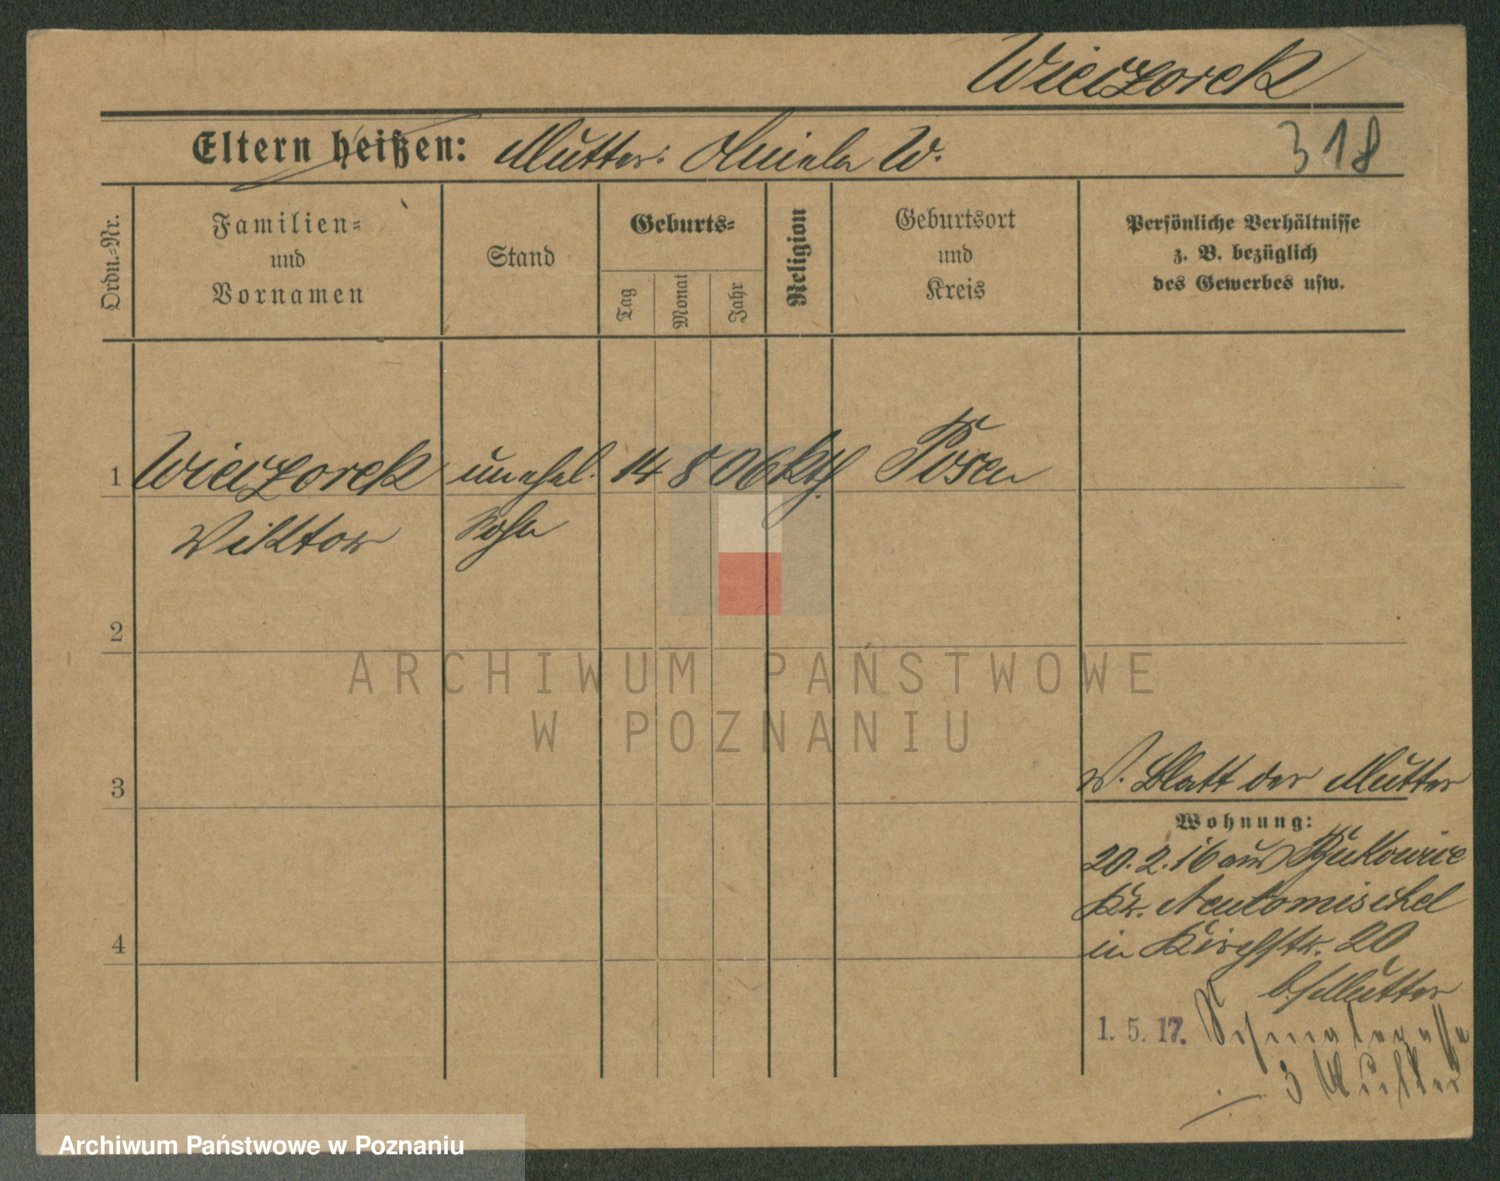 Wieczorek
Eltern heißen: Mutter: Aniela W.
318
Ordn.-Nr.
Familien-
und
Vornamen
Stand
Geburts-
Tag
Monat
Jahr
Religion
Geburtsort
und
Kreis
Persönliche Verhältnisse
z. B. bezüglich
des Gewerbes usw.
1 Wieczorek unehel. 14 8 06 kth Posen
Viktor Sohn
2
ARCHIWUM PAŃSTWOWE
W POZNANIU
3
W. Blatt der Mutter
Wohnung:
20.2.16 aus Bukowice
Kr. Neutomischel
4
in Kirchstr. 20
b/Mutter
1. 5. 17.
3 Mutter
Archiwum Państwowe w Poznaniu